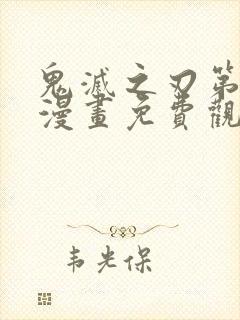 鬼滅之刃第
漫畫免費觀
韦光保